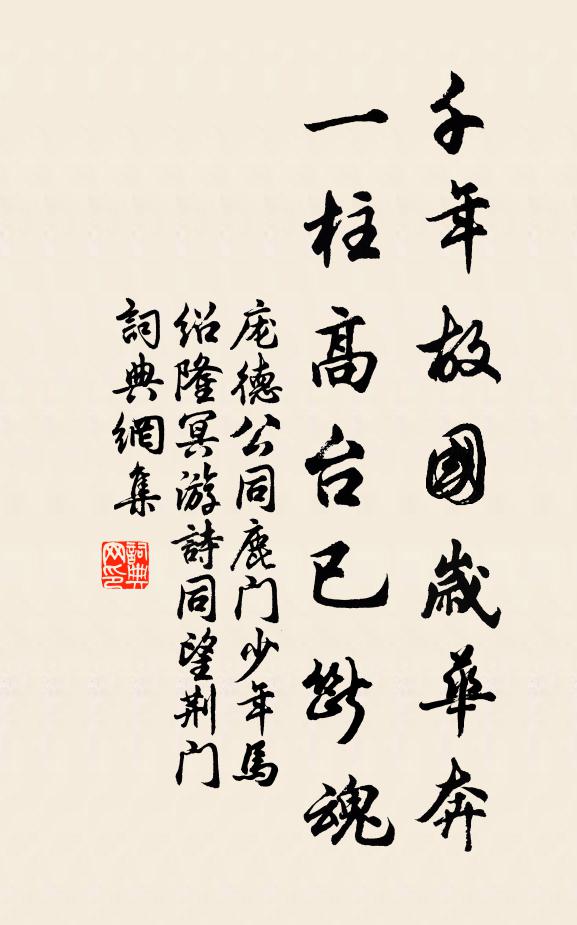 千年故國歲華奔
一柱高台已斷魂
庞德公同鹿门少年馬
绍隆冥游詩同望荆门
詞典網集
詞典网印